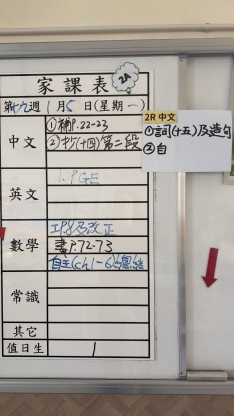 家課表
2A
第十九週 1月5日(星期一)
中文
①補P.22-23
②抄(十四)第二段
2R 中文
①詞(十五)及造句
②自
英文
1. PGE
數學
工P8及改正
書P.72-73
自主(ch1-6)總結
常識
其它
值日生
1